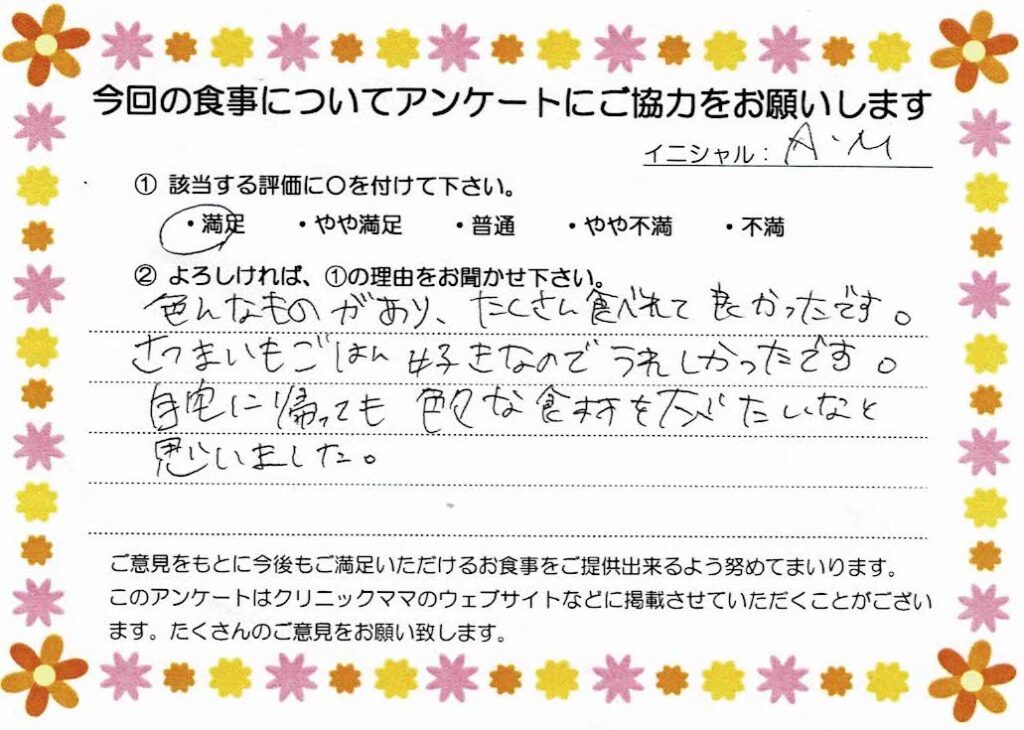 今回の食事についてアンケートにご協力をお願いします
イニシャル：A.M
① 該当する評価に〇を付けて下さい。
・満足 ・やや満足 ・普通 ・やや不満 ・不満
② よろしければ、①の理由をお聞かせ下さい。
色んなものがあり、たくさん食べれて良かったです。
さつまいもごはん好きなのでうれしかったです。
自宅に帰っても色々な食材をたいなと
思いました。
ご意見をもとに今後もご満足いただけるお食事をご提供出来るよう努めてまいります。
このアンケートはクリニックママのウェブサイトなどに掲載させていただくことがござい
ます。たくさんのご意見をお願い致します。